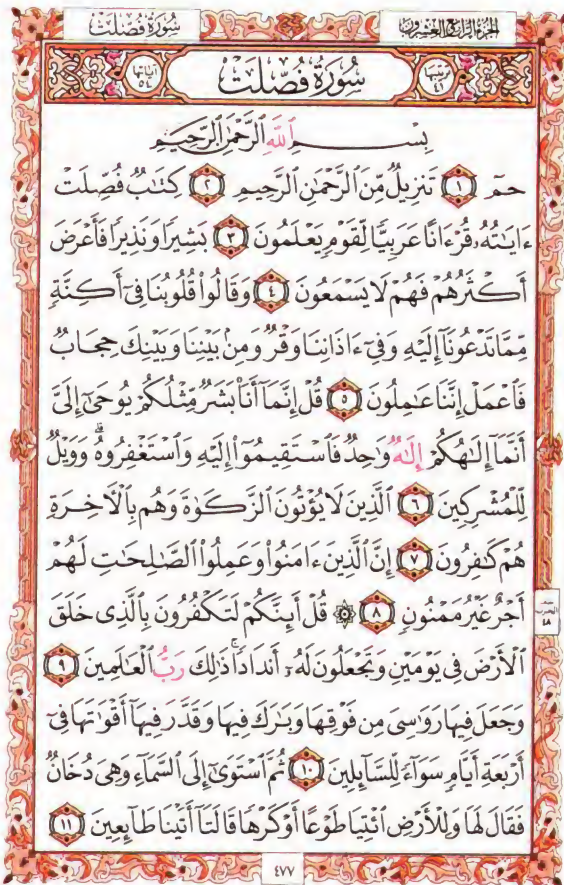 سُورَةُ فُصِّلَتْ
الجُزْءُ الرَّابِعُ وَالعِشْرُونَ
ترتيبها ٤١
سُورَةُ فُصِّلَتْ
آياتها ٥٤
بِسْمِ ٱللَّهِ ٱلرَّحْمَٰنِ ٱلرَّحِيمِ
حمٓ ١ تَنزِيلٌ مِّنَ ٱلرَّحْمَٰنِ ٱلرَّحِيمِ ٢ كِتَٰبٌ فُصِّلَتْ
ءَايَٰتُهُۥ قُرْءَانًا عَرَبِيًّا لِّقَوْمٍ يَعْلَمُونَ ٣ بَشِيرًا وَنَذِيرًا فَأَعْرَضَ
أَكْثَرُهُمْ فَهُمْ لَا يَسْمَعُونَ ٤ وَقَالُوا۟ قُلُوبُنَا فِىٓ أَكِنَّةٍ
مِّمَّا تَدْعُونَآ إِلَيْهِ وَفِىٓ ءَاذَانِنَا وَقْرٌ وَمِنۢ بَيْنِنَا وَبَيْنِكَ حِجَابٌ
فَٱعْمَلْ إِنَّنَا عَٰمِلُونَ ٥ قُلْ إِنَّمَآ أَنَا۠ بَشَرٌ مِّثْلُكُمْ يُوحَىٰٓ إِلَىَّ
أَنَّمَآ إِلَٰهُكُمْ إِلَٰهٌ وَٰحِدٌ فَٱسْتَقِيمُوٓا۟ إِلَيْهِ وَٱسْتَغْفِرُوهُ ۗ وَوَيْلٌ
لِّلْمُشْرِكِينَ ٦ ٱلَّذِينَ لَا يُؤْتُونَ ٱلزَّكَوٰةَ وَهُم بِٱلْءَاخِرَةِ
هُمْ كَٰفِرُونَ ٧ إِنَّ ٱلَّذِينَ ءَامَنُوا۟ وَعَمِلُوا۟ ٱلصَّٰلِحَٰتِ لَهُمْ
أَجْرٌ غَيْرُ مَمْنُونٍ ٨ ۞ قُلْ أَئِنَّكُمْ لَتَكْفُرُونَ بِٱلَّذِى خَلَقَ
ٱلْأَرْضَ فِى يَوْمَيْنِ وَتَجْعَلُونَ لَهُۥٓ أَندَادًا ۚ ذَٰلِكَ رَبُّ ٱلْعَٰلَمِينَ ٩
وَجَعَلَ فِيهَا رَوَٰسِىَ مِن فَوْقِهَا وَبَٰرَكَ فِيهَا وَقَدَّرَ فِيهَآ أَقْوَٰتَهَا فِىٓ
أَرْبَعَةِ أَيَّامٍ سَوَآءً لِّلسَّآئِلِينَ ١٠ ثُمَّ ٱسْتَوَىٰٓ إِلَى ٱلسَّمَآءِ وَهِىَ دُخَانٌ
فَقَالَ لَهَا وَلِلْأَرْضِ ٱئْتِيَا طَوْعًا أَوْ كَرْهًا قَالَتَآ أَتَيْنَا طَآئِعِينَ ١١
الحزب
٤٨
٤٧٧